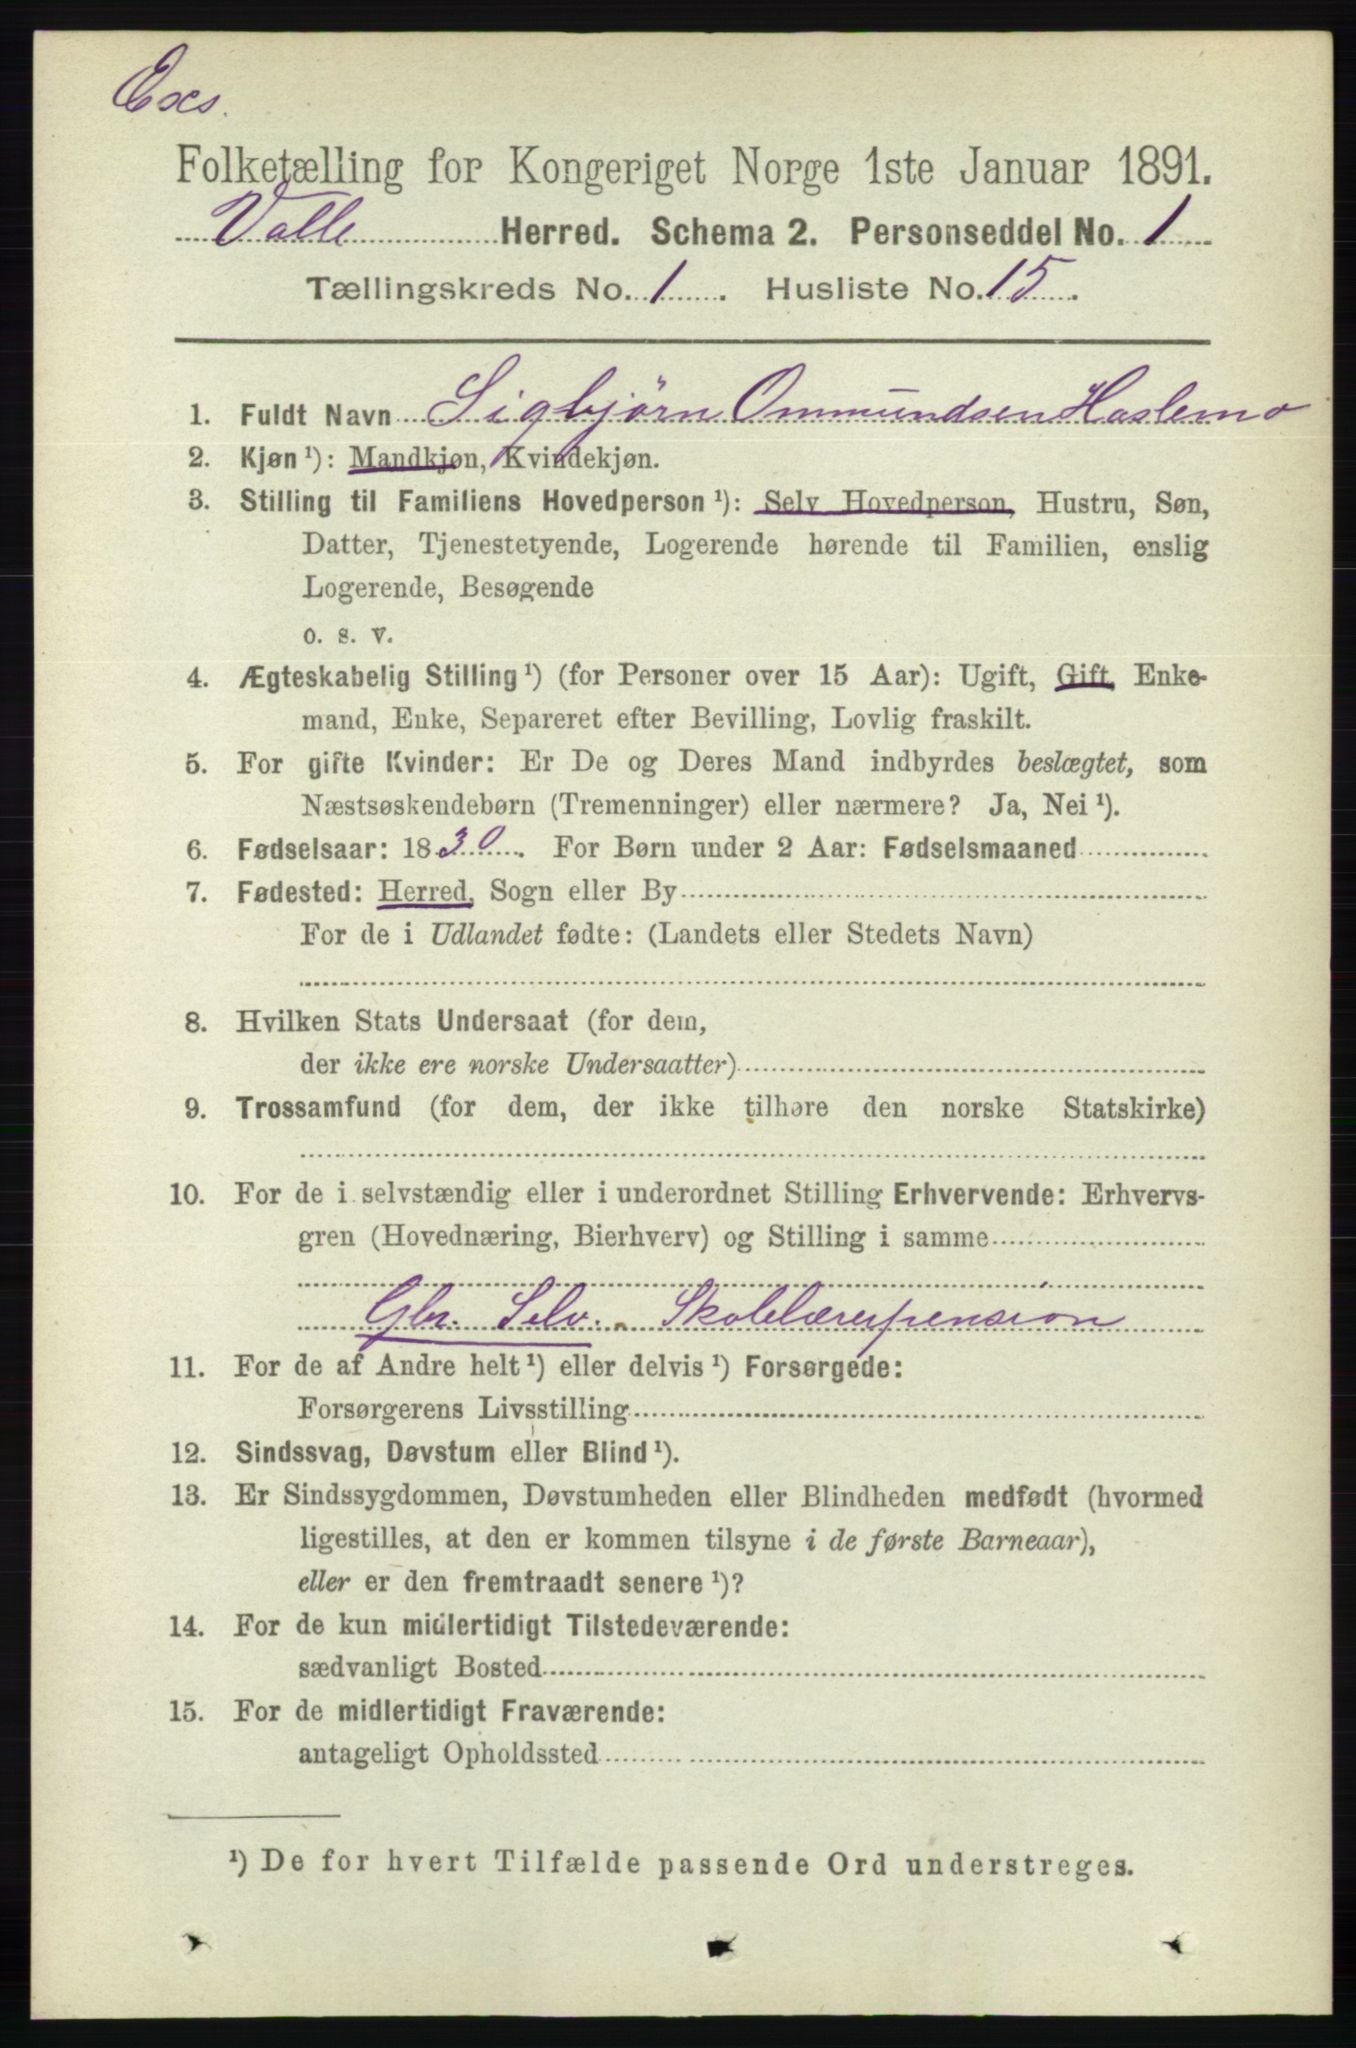 Exs.
Folketælling for Kongeriget Norge 1ste Januar 1891.
Valle Herred. Schema 2. Personseddel No. 1
Tællingskreds No. 1. Husliste No. 15.
1. Fuldt Navn Sigbjörn Ommundsen Haslemo
2. Kjøn ¹): Mandkjøn, Kvindekjøn.
3. Stilling til Familiens Hovedperson ¹): Selv Hovedperson, Hustru, Søn,
Datter, Tjenestetyende, Logerende hørende til Familien, enslig
Logerende, Besøgende
o. s. v.
4. Ægteskabelig Stilling ¹) (for Personer over 15 Aar): Ugift, Gift, Enke-
mand, Enke, Separeret efter Bevilling, Lovlig fraskilt.
5. For gifte Kvinder: Er De og Deres Mand indbyrdes beslægtet, som
Næstsøskendebørn (Tremenninger) eller nærmere? Ja, Nei ¹).
6. Fødselsaar: 1830. For Børn under 2 Aar: Fødselsmaaned
7. Fødested: Herred, Sogn eller By
For de i Udlandet fødte: (Landets eller Stedets Navn)
8. Hvilken Stats Undersaat (for dem,
der ikke ere norske Undersaatter)
9. Trossamfund (for dem, der ikke tilhøre den norske Statskirke)
10. For de i selvstændig eller i underordnet Stilling Erhvervende: Erhvervs-
gren (Hovednæring, Bierhverv) og Stilling i samme
Gbr. Selv. Skolelærerpension
11. For de af Andre helt ¹) eller delvis ¹) Forsørgede:
Forsørgerens Livsstilling
12. Sindssvag, Døvstum eller Blind ¹).
13. Er Sindssygdommen, Døvstumheden eller Blindheden medfødt (hvormed
ligestilles, at den er kommen tilsyne i de første Barneaar),
eller er den fremtraadt senere ¹)?
14. For de kun midlertidigt Tilstedeværende:
sædvanligt Bosted
15. For de midlertidigt Fraværende:
antageligt Opholdssted
¹) De for hvert Tilfælde passende Ord understreges.